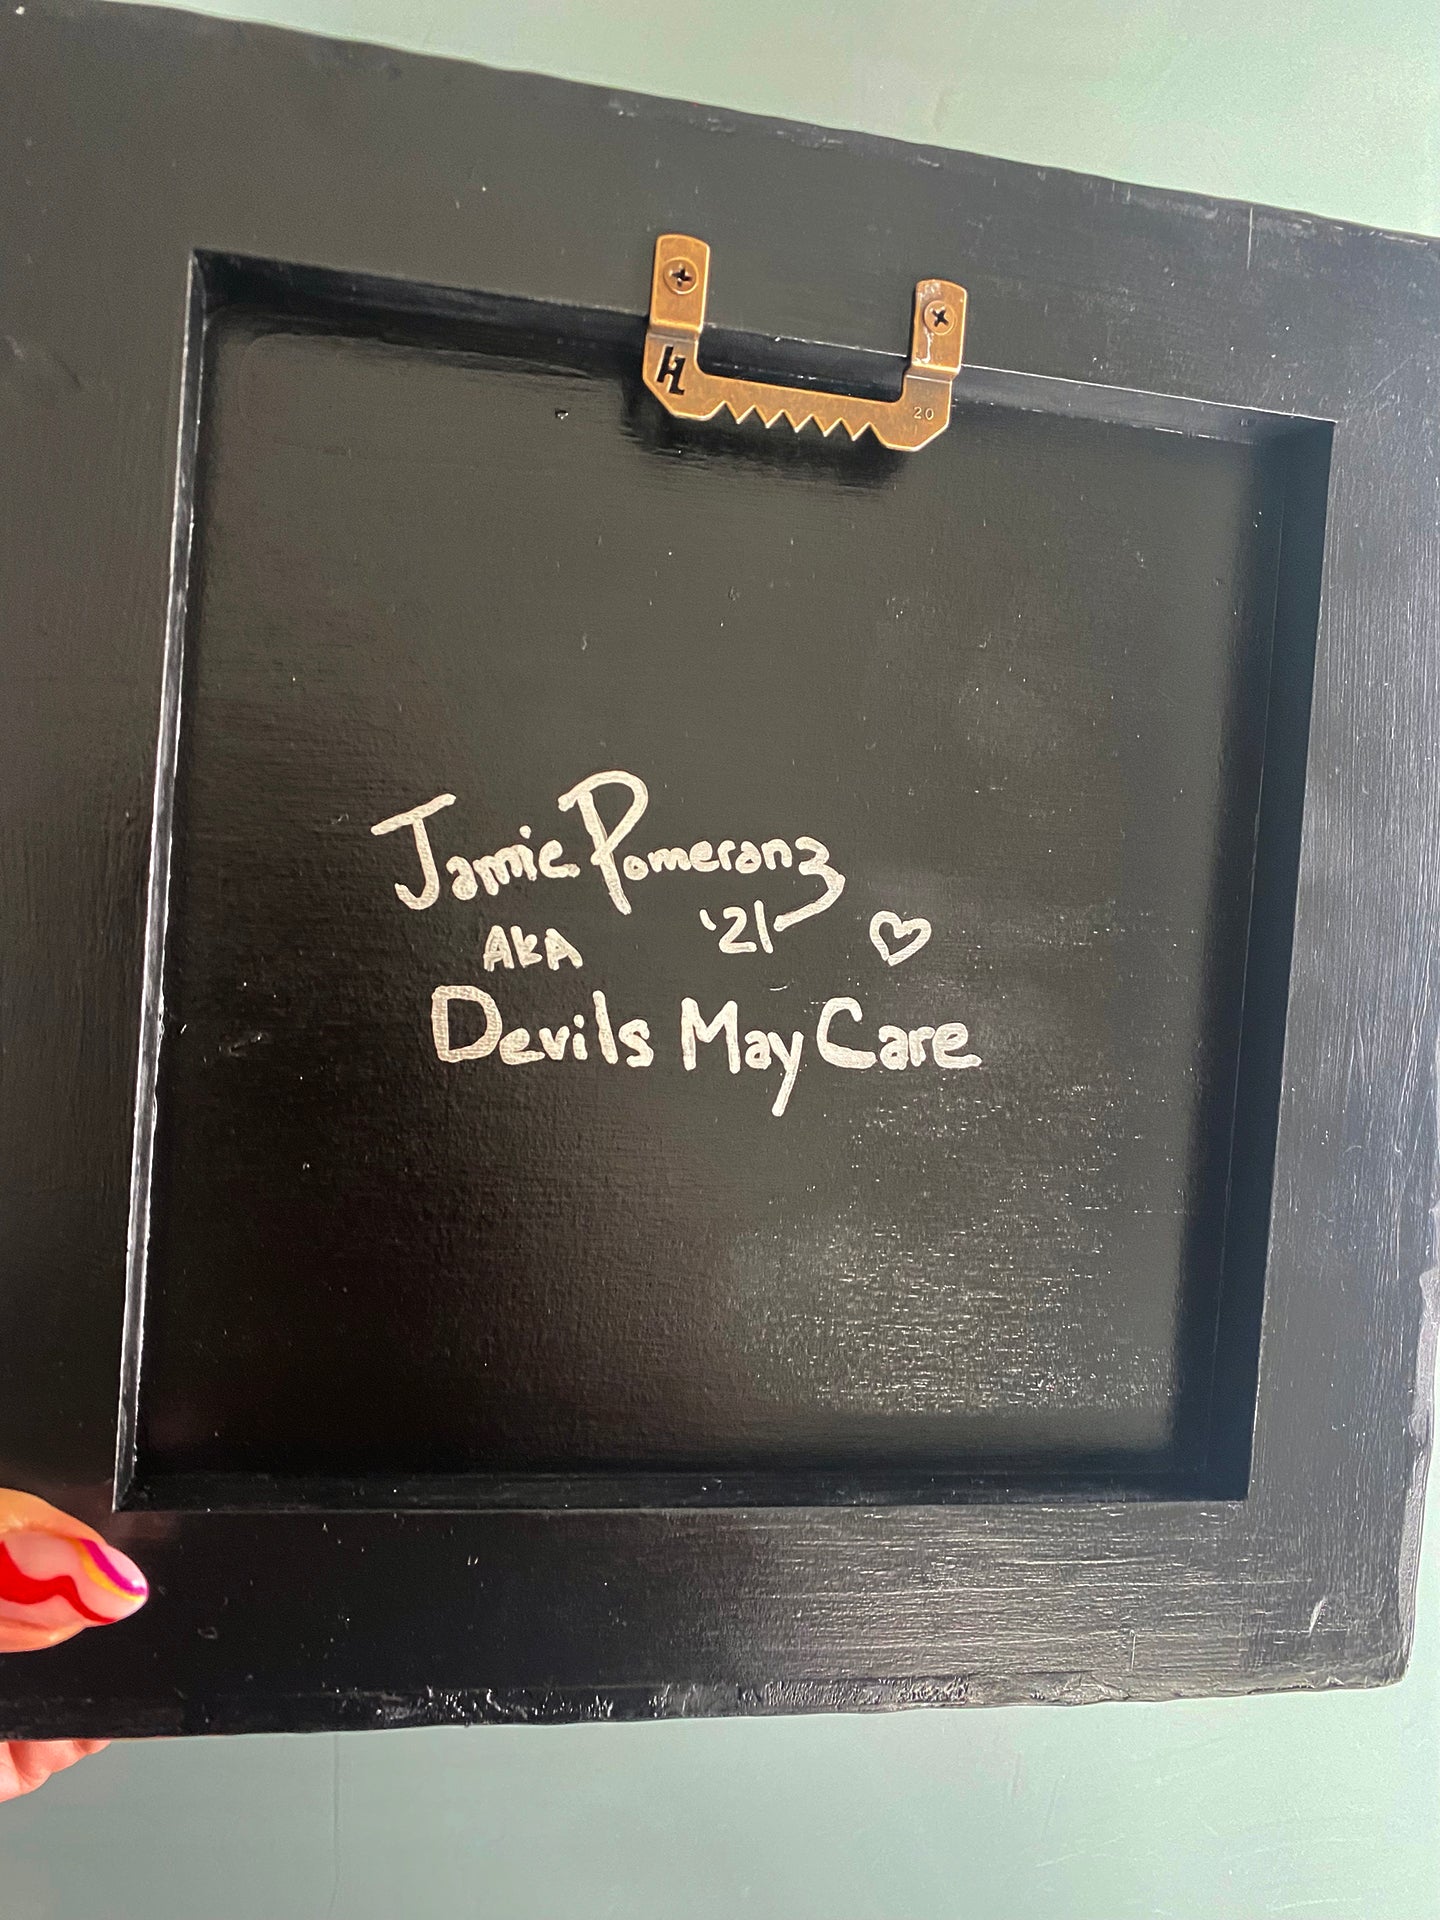 H
20
Jamie Pomeranz
'21
AKA
Devils May Care